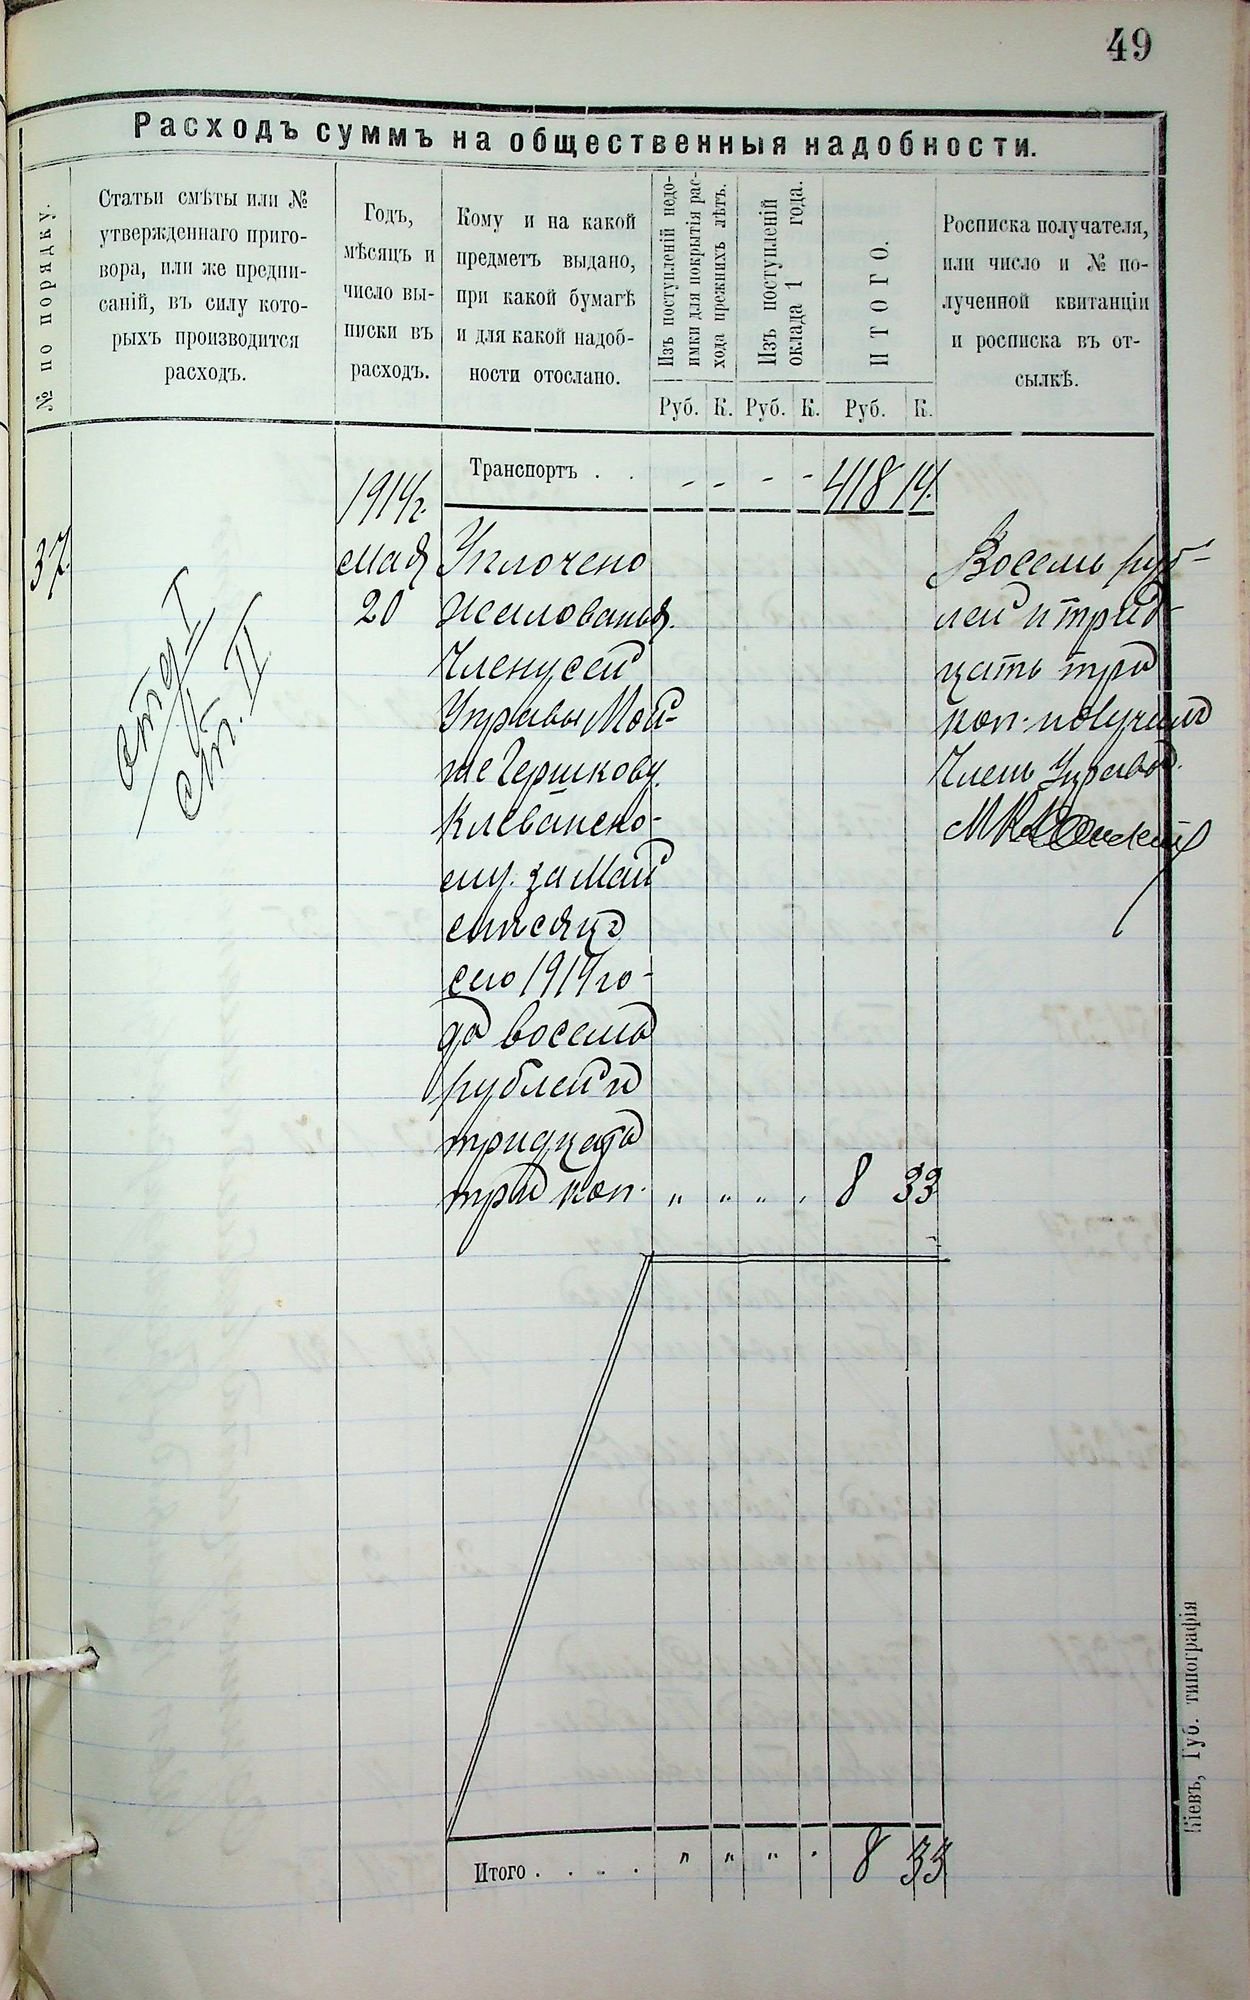 49
Расходъ суммъ на общественныя надобности.
№ по порядку.
Статьи смѣты или №
утвержденнаго приго-
вора, или же предпи-
саній, въ силу кото-
рыхъ производится
расходъ.
Годъ,
мѣсяцъ и
число вы-
писки въ
расходъ.
Кому и на какой
предметъ выдано,
при какой бумагѣ
и для какой надоб-
ности отослано.
Изъ поступленій недо-
имки для покрытія рас-
хода прежнихъ лѣтъ.
Изъ поступленій
оклада 1 года.
ИТОГО.
Росписка получателя,
или число и № по-
лученной квитанціи
и росписка въ от-
сылкѣ.
Руб. К. Руб. К. Руб. К.
Транспортъ . . - - - - 418 14.
37.
отд I
ст. II
1914 г.
мая
20
Уплочено
жалованья
Члену сей
Управы Мой-
ше Гершкову
Клеванско-
му за Май
мѣсяцъ
сего 1914 го-
да восемь
рублей и
тридцать
три коп. „ „ „ „ 8 33
Восемь руб-
лей и трид-
цать три
коп. получилъ
Членъ Управы
Итого . . . . „ „ „ „ 8 33
Кіевъ, Губ. типографія